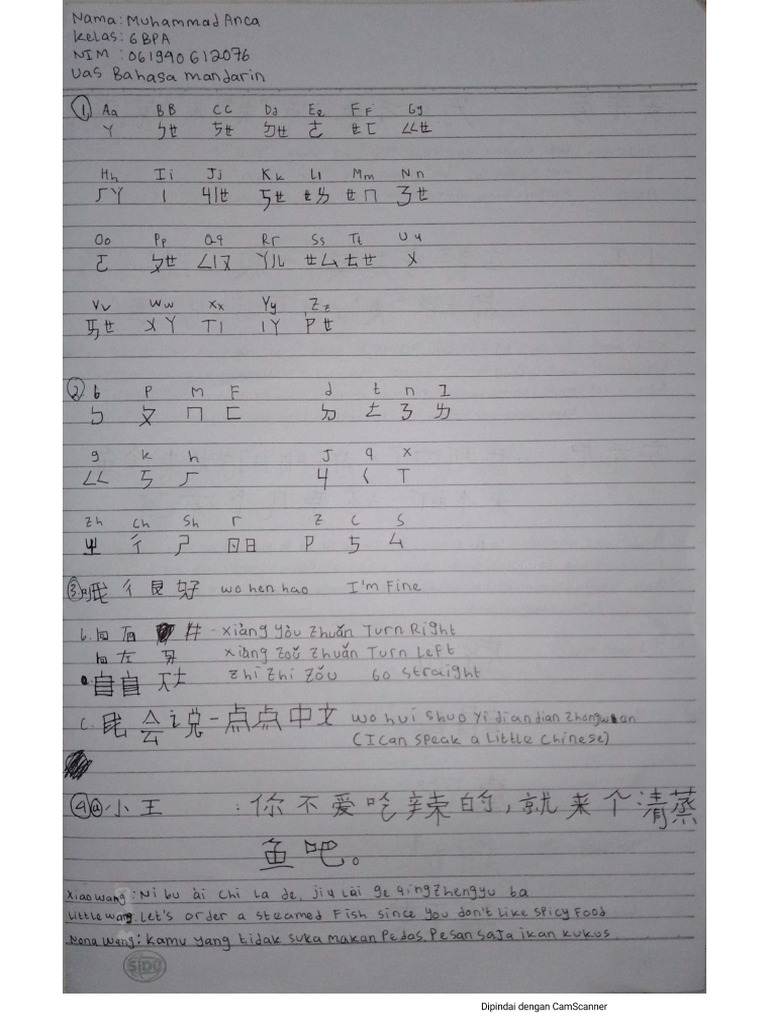 Nama: Muhammad Anca
Kelas: 6BPA
NIM: 061940612076
Uas Bahasa mandarin
1. Aa BB CC Dd Ee FF Gg
ㄚ ㄅㄝ ㄘㄝ ㄉㄝ ㄜ ㄝㄈ ㄍㄝ
Hh Ii Jj Kk Ll Mm Nn
ㄏㄚ ㄧ ㄐㄧㄝ ㄎㄝ ㄝㄌ ㄝㄇ ㄋㄝ
Oo Pp Qq Rr Ss Tt Uu
ㄛ ㄆㄝ ㄑㄧㄡ ㄚㄦ ㄝㄙ ㄊㄝ ㄨ
Vv Ww Xx Yy Zz
ㄪㄝ ㄨㄚ ㄒㄧ ㄧㄚ ㄗㄝ
2. b p m F d t n I
ㄅ ㄆ ㄇ ㄈ ㄉ ㄊ ㄋ ㄌ
g k h J q x
ㄍ ㄎ ㄏ ㄐ ㄑ ㄒ
Zh Ch Sh r Z C S
ㄓ ㄔ ㄕ ㄖ日 ㄗ ㄘ ㄙ
3. 好 wo hen hao I'm Fine
b. 向右 - xiàng yòu Zhuǎn Turn Right
向左 xiàng Zoǔ Zhuǎn Turn Left
自自 Zhí Zhi Zǒu Go Straight
C. 我会说一点点中文 wo hui shuo Yi diandian Zhong
(I Can Speak a Little Chinese)
4 a 小王 : 你不爱吃辣的,就来个清蒸
鱼吧。
Xiao wang: Ni bu ài Chi La de, jiu Lài ge qingZhengyu ba
Little wang: Let's order a steamed Fish since you don't like spicy Food
Nona Wang: Kamu yang tidak suka makan Pedas, Pesan saja ikan kukus
SIDU
Dipindai dengan CamScanner